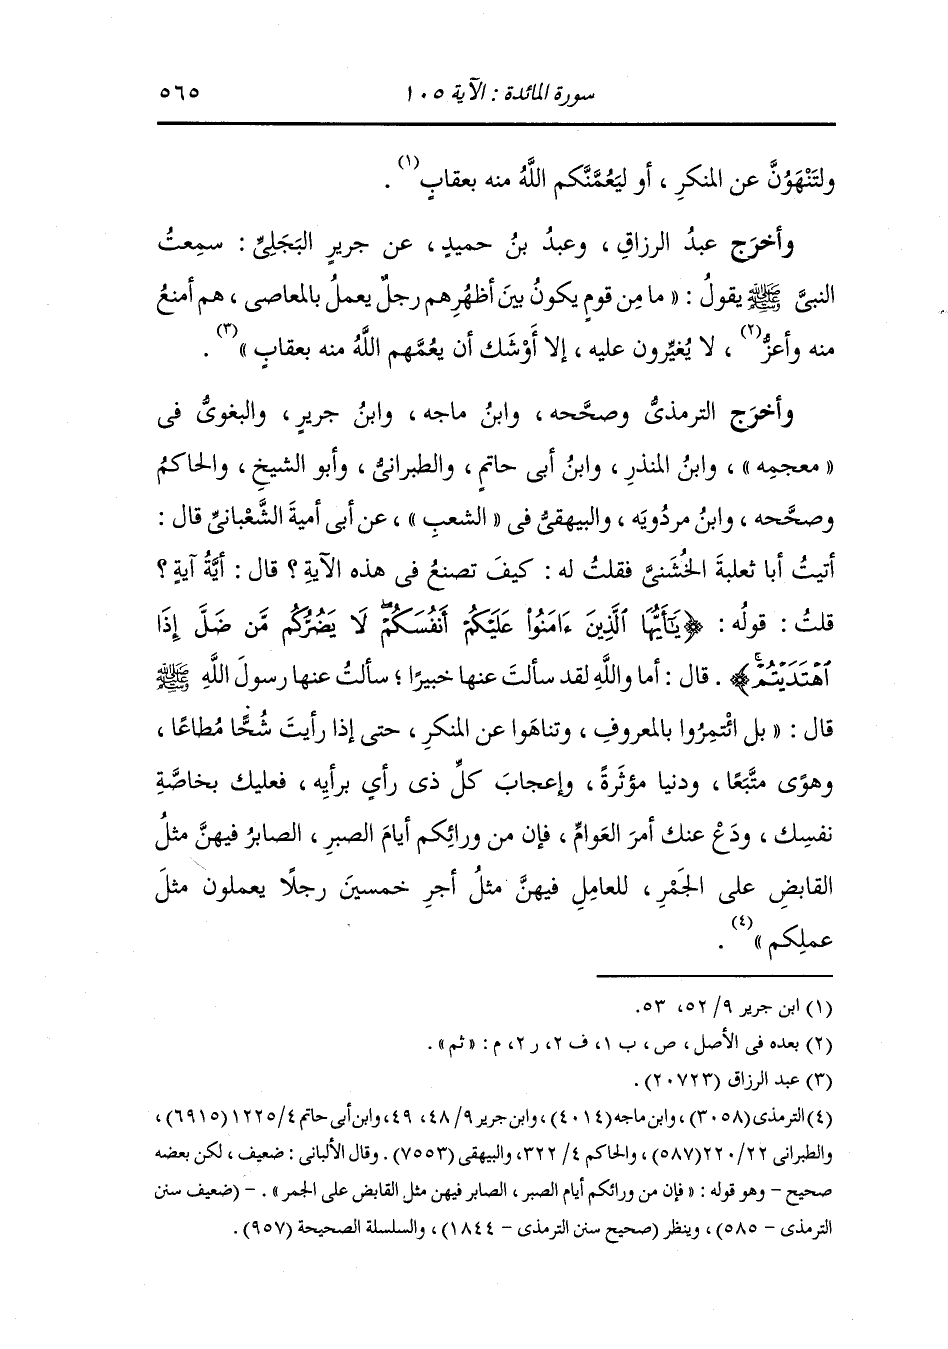 سورة المائدة : الآية ١٠٥ ٥٦٥
ولتَنْهَوُنَّ عن المنكرِ ، أو ليَعُمَّنَّكم اللَّهُ منه بعقابٍ(١) .
وأخرَج عبدُ الرزاقِ ، وعبدُ بنُ حميدٍ ، عن جريرٍ البَجَلِيِّ : سمِعتُ
النبىَّ ﷺ يقولُ : « ما مِن قومٍ يكونُ بينَ أظهُرِهم رجلٌ يعملُ بالمعاصى ، هم أمنعُ
منه وأعزُّ(٢) ، لا يُغيِّرون عليه ، إلا أَوْشَك أن يعُمَّهم اللَّهُ منه بعقابٍ »(٣) .
وأخرَج الترمذىُّ وصحَّحه ، وابنُ ماجه ، وابنُ جريرٍ ، والبغوىُّ فى
« معجمِه » ، وابنُ المنذرِ ، وابنُ أبى حاتمٍ ، والطبرانىُّ ، وأبو الشيخِ ، والحاكمُ
وصحَّحه ، وابنُ مردُويَه ، والبيهقىُّ فى « الشعبِ » ، عن أبى أميةَ الشَّعْبانىِّ قال :
أتيتُ أبا ثعلبةَ الخُشَنىَّ فقلتُ له : كيفَ تصنعُ فى هذه الآيةِ ؟ قال : أيَّةُ آيةٍ ؟
قلتُ : قولُه : ﴿يَٰٓأَيُّهَا ٱلَّذِينَ ءَامَنُوا۟ عَلَيْكُمْ أَنفُسَكُمْۖ لَا يَضُرُّكُم مَّن ضَلَّ إِذَا
ٱهْتَدَيْتُمْۚ﴾ . قال : أما واللَّهِ لقد سألتَ عنها خبيرًا ؛ سألتُ عنها رسولَ اللَّهِ ﷺ
قال : « بل ائْتمِرُوا بالمعروفِ ، وتناهَوا عن المنكرِ ، حتى إذا رأيتَ شُحًّا مُطاعًا ،
وهوًى متَّبَعًا ، ودنيا مؤثَرةً ، وإعجابَ كلِّ ذى رأىٍ برأيِه ، فعليك بخاصَّةِ
نفسِك ، ودَعْ عنك أمرَ العَوامِّ ، فإن من ورائِكم أيامَ الصبرِ ، الصابرُ فيهنَّ مثلُ
القابضِ على الجَمْرِ ، للعاملِ فيهنَّ مثلُ أجرِ خمسينَ رجلًا يعملون مثلَ
عملِكم »(٤) .
(١) ابن جرير ٩/ ٥٢، ٥٣.
(٢) بعده فى الأصل ، ص ، ب ١، ف ٢، ر ٢، م : « ثم » .
(٣) عبد الرزاق (٢٠٧٢٣) .
(٤) الترمذى (٣٠٥٨) ، وابن ماجه (٤٠١٤) ، وابن جرير ٩/ ٤٨، ٤٩، وابن أبى حاتم ٤/ ١٢٢٥ (٦٩١٥) ،
والطبرانى ٢٢/ ٢٢٠ (٥٨٧) ، والحاكم ٤/ ٣٢٢، والبيهقى (٧٥٥٣) . وقال الألبانى : ضعيف ، لكن بعضه
صحيح – وهو قوله : « فإن من ورائكم أيام الصبر ، الصابر فيهن مثل القابض على الجمر » . – (ضعيف سنن
الترمذى – ٥٨٥) ، وينظر (صحيح سنن الترمذى – ١٨٤٤) ، والسلسلة الصحيحة (٩٥٧) .